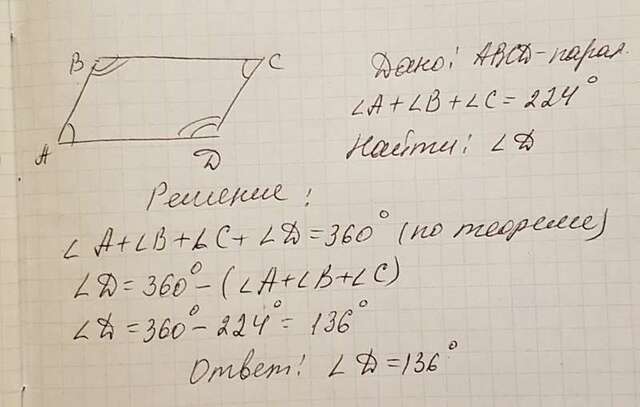 B C
A D
Дано: ABCD-парал.
∠A+∠B+∠C=224°
Найти: ∠D
Решение:
∠A+∠B+∠C+∠D=360° (по теореме)
∠D=360°-(∠A+∠B+∠C)
∠D=360°-224°=136°
Ответ: ∠D=136°